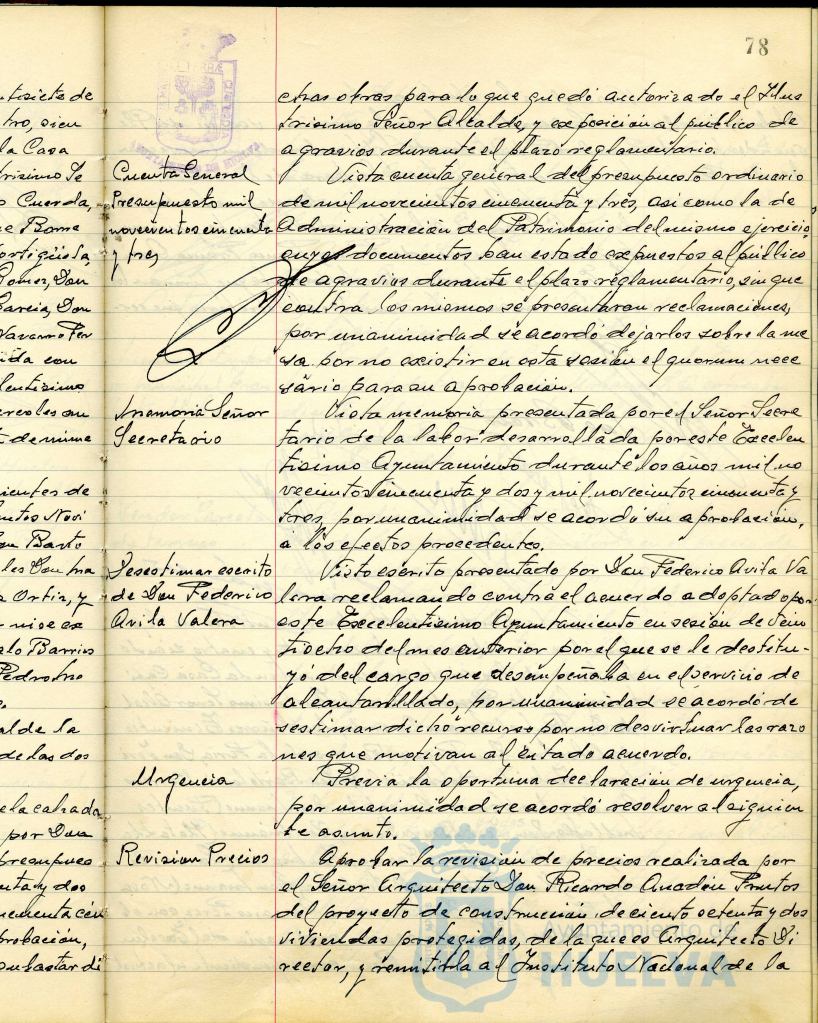 78
ntisiete de
tro, sien
la Casa
trisimo Te
o Cuerda,
e Borre
ortigüela,
Gomez, Don
Garcia, Don
Navarro Fer
ida con
lentisimo
ercoles an
de nueve
ientes de
ntos Novi
on Barto
les Don
o Ortiz, y
elo Barrios
Pedro
alde la
de las dos
e la calzada
por Don
presupues
nta y dos
probación,
subastar di
Cuenta General
Presupuesto mil
novecientos cincuenta
y tres
Memoria Señor
Secretario
Desestimar escrito
de Don Federico
Avila Valera
Urgencia
Revision Precios
chas obras para lo que quedó autorizado el Ilus
trisimo Señor Alcalde, y exposición al público de
agravios durante el plazo reglamentario.
Vista cuenta general del presupuesto ordinario
de mil novecientos cincuenta y tres, asi como la de
Administración del Patrimonio del mismo ejercicio,
cuyos documentos han estado expuestos al público
de agravios durante el plazo reglamentario, sin que
contra los mismos se presentaran reclamaciones,
por unanimidad se acordó dejarlos sobre la me
sa por no existir en esta sesión el quorum nece
sario para su aprobación.
Vista memoria presentada por el Señor Secre
tario de la labor desarrollada por este Excelen
tisimo Ayuntamiento durante los años mil no
vecientos cincuenta y dos y mil novecientos cincuenta y
tres, por unanimidad se acordó su aprobación,
a los efectos procedentes.
Visto escrito presentado por Don Federico Avila Va
lera reclamando contra el acuerdo adoptado por
este Excelentisimo Ayuntamiento en sesión de vein
tiocho del mes anterior por el que se le destitu-
yó del cargo que desempeñaba en el servicio de
alcantarillado, por unanimidad se acordó de
sestimar dicho recurso por no desvirtuar las razo
nes que motivan al citado acuerdo.
Previa la oportuna declaración de urgencia,
por unanimidad se acordó resolver al siguien
te asunto.
Aprobar la revisión de precios realizada por
el Señor Arquitecto Don Ricardo Anadón Frutos
del proyecto de construcción de ciento setenta y dos
viviendas protegidas, de la que es Arquitecto Di
rector, y remitirla al Instituto Nacional de la
Ayuntamiento de
HUELVA